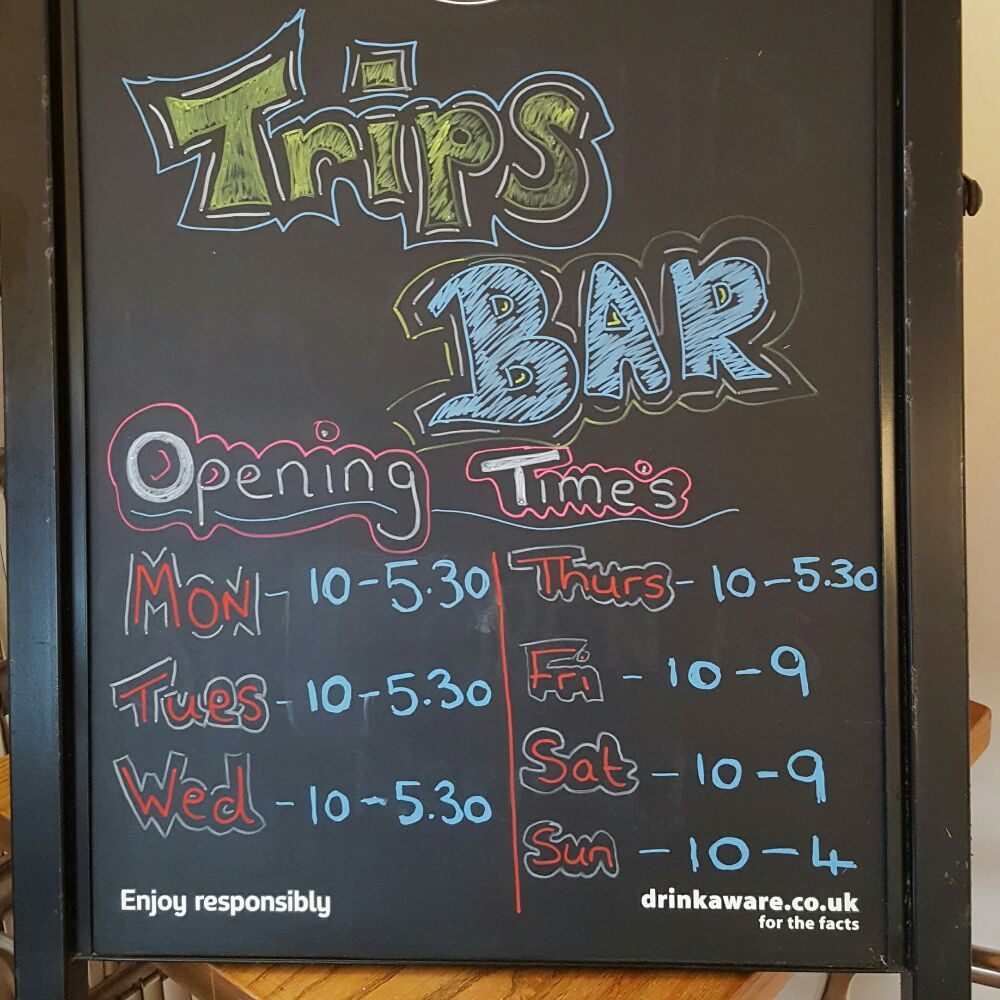 Trips
BAR
Opening Time's
Mon - 10-5.30
Tues - 10-5.30
Wed - 10-5.30
Thurs - 10-5.30
Fri - 10-9
Sat - 10-9
Sun - 10-4
Enjoy responsibly
drinkaware.co.uk
for the facts